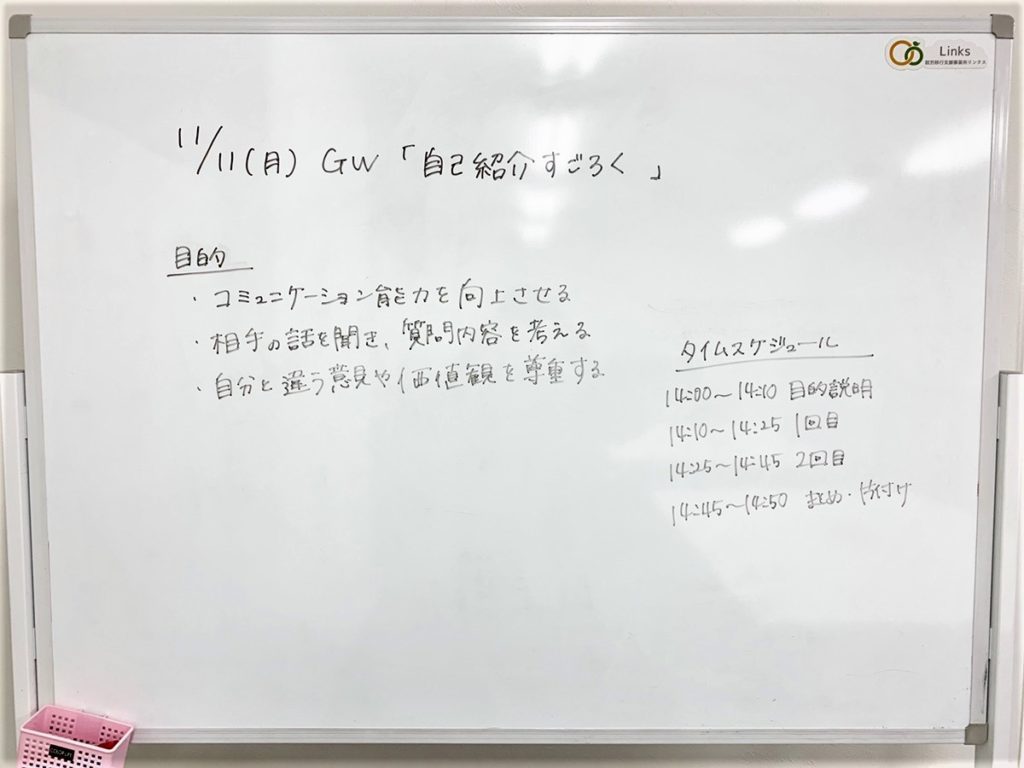 Links
就労移行支援事業所リンクス
11/11(月) GW 「自己紹介すごろく」
目的
・コミュニケーション能力を向上させる
・相手の話を聞き、質問内容を考える
・自分と違う意見や価値観を尊重する
タイムスケジュール
14:00〜14:10 目的説明
14:10〜14:25 1回目
14:25〜14:45 2回目
14:45〜14:50 まとめ・片付け